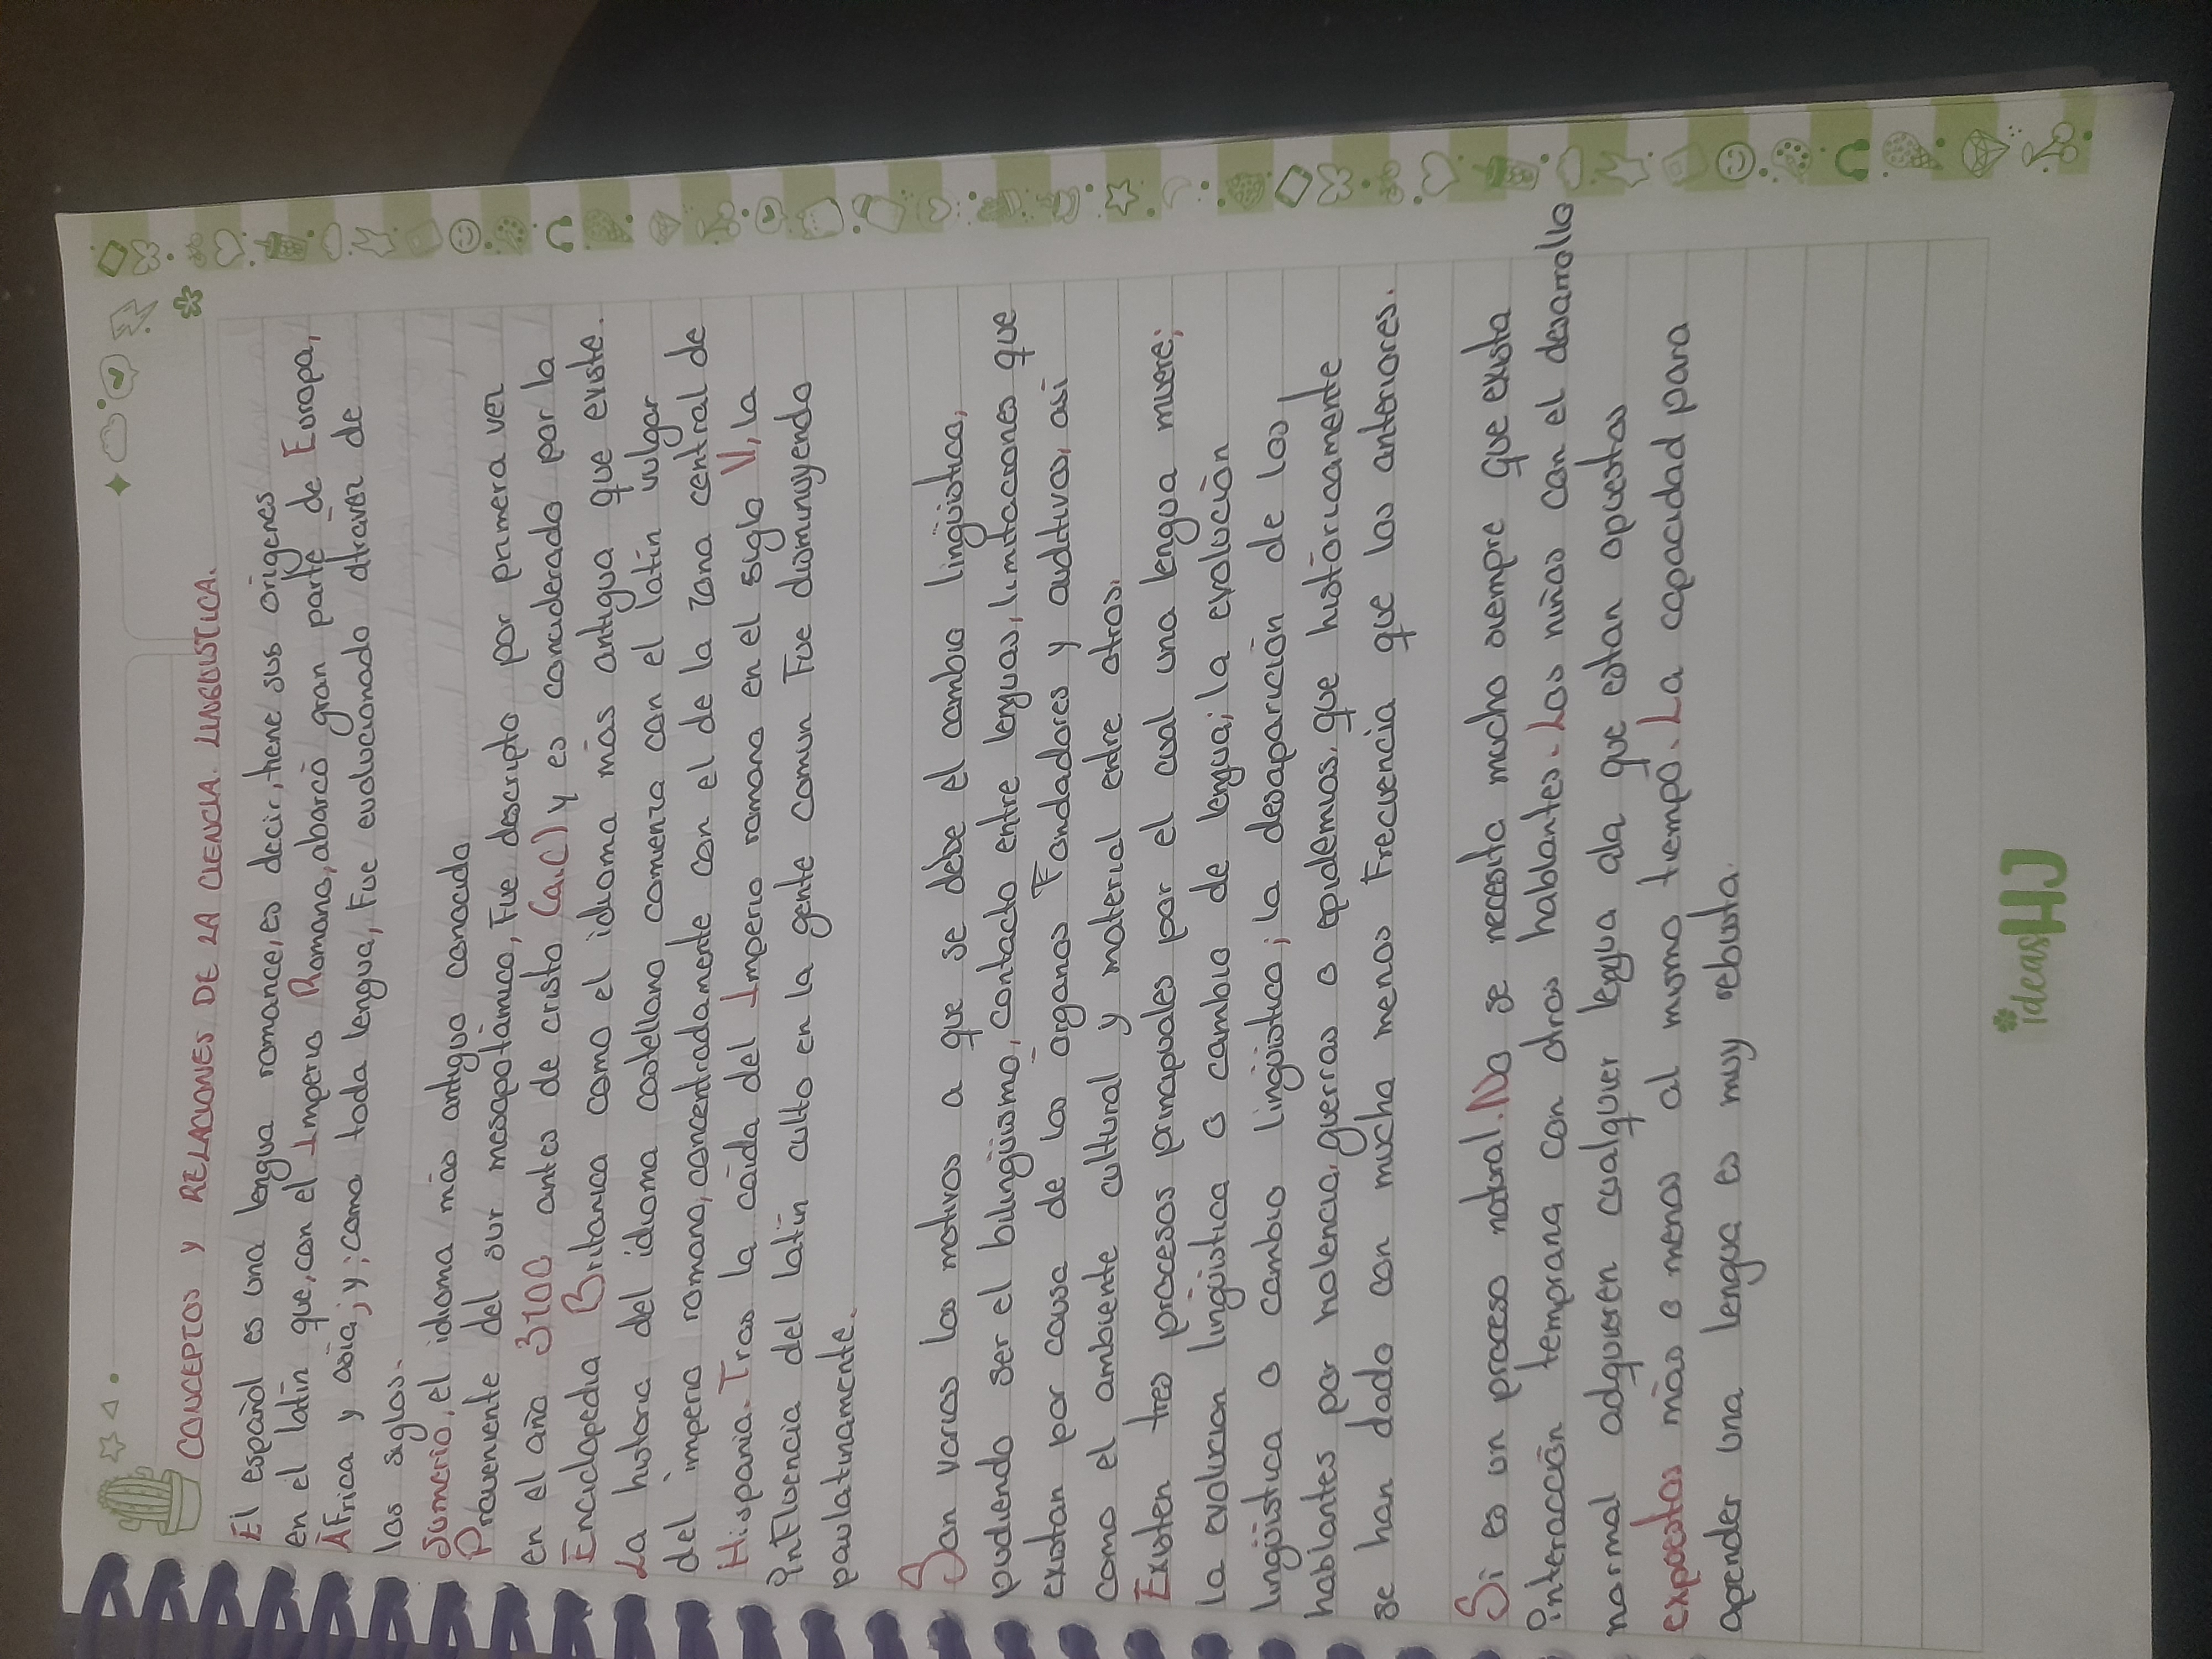 CONCEPTOS Y RELACIONES DE LA CIENCIA. LINGUISTICA.
El español es una lengua romance, es decir, tiene sus origenes
en el latín que, con el Imperio Romano, abarcó gran parte de Europa,
África y asia; y; como toda lengua, Fue evolucionado atravez de
los siglos.
Sumerio, el idioma más antiguo conocido
Proveniente del sur mesopotámico, Fue descripto por primera vez
en el año 3100 antes de cristo (a.C) y es conciderado por la
Enciclopedia Britanica como el idioma más antigua que existe.
La historia del idioma castellano, comienza con el latín vulgar
del imperio romano, concentradamente con el de la zona central de
Hispania. Tras la caída del Imperio romano en el siglo V, la
inFluencia del latín culto en la gente comun Fue disminuyendo
paulatinamente.
Son varios los motivos a que se debe el cambio lingüistico,
pudiendo ser el bilingüismo, contacto entre lenguas, limitaciones que
existan por causa de los órganos Fondadores y auditivos, asi
como el ambiente cultural y material entre otros.
Existen tres procesos principuales por el cual una lengua muere;
la evolucion lingüistica o cambio de lengua; la evolución
lingüistica o cambio lingüistico; la desaparición de los
hablantes por violencia, guerras o epidemias, que históricamente
se han dado con mucha menos Frecuencia que los anteriores.
Si es un proceso natural. No se necesita mucho siempre que exista
interacción temprana con otros hablantes. Los niños con el desarrollo
normal adquieren cualquier lengua ala que estan opuestos
expuestos más o menos al mismo tiempo. La capacidad para
apender una lengua es muy rebusta.
ideas HJ